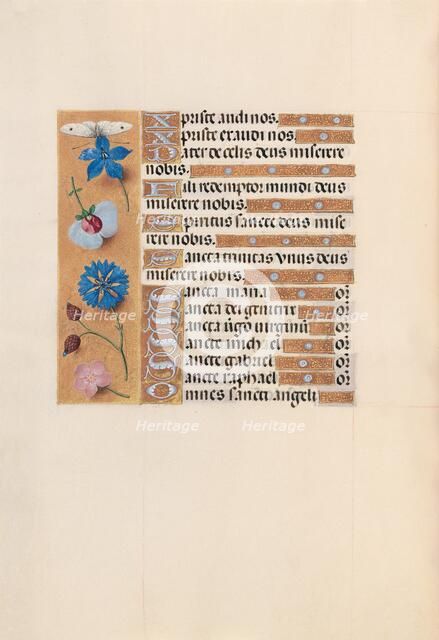 Xpriste audi nos.
Xpriste exaudi nos.
Pater de celis deus miserere
nobis.
Fili redemptor mundi deus
miserere nobis.
Spiritus sancte deus mise
rere nobis.
Sancta trinitas vnus deus
miserere nobis.
Sancta maria or
Sancta dei genitrix or
Sancta virgo virginū or
Sancte michael or
Sancte gabriel or
Sancte raphael or
Omnes sancti angeli
Heritage Heritage
Heritage Heritage
Heritage Heritage